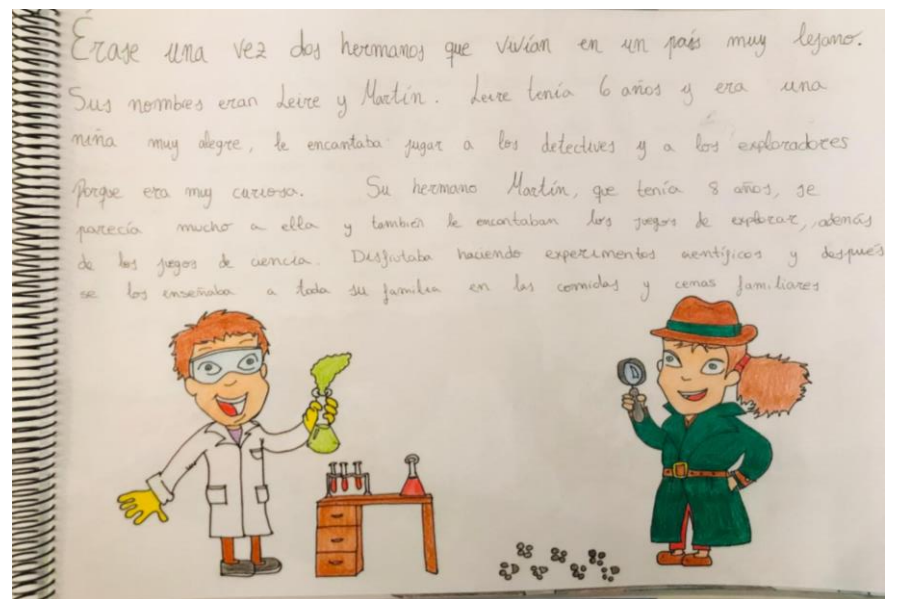 Érase una vez dos hermanos que vivían en un país muy lejano.
Sus nombres eran Leire y Martín. Leire tenía 6 años y era una
niña muy alegre, le encantaba jugar a los detectives y a los exploradores
porque era muy curiosa. Su hermano Martín, que tenía 8 años, se
parecía mucho a ella y también le encantaban los juegos de explorar, además
de los juegos de ciencia. Disfrutaba haciendo experimentos científicos y después
se los enseñaba a toda su familia en las comidas y cenas familiares